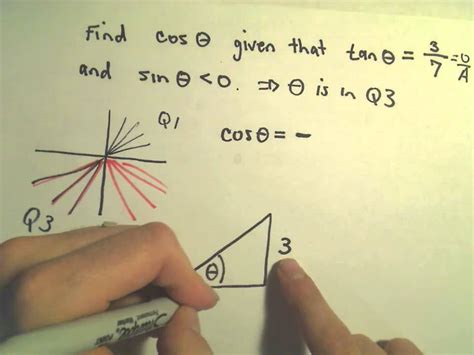 Find cosθ given that tanθ = 3/7 = O/A
and sinθ < 0. ⇒ θ is in Q3
Q1
cosθ = -
Q3
θ
3
Sharpie